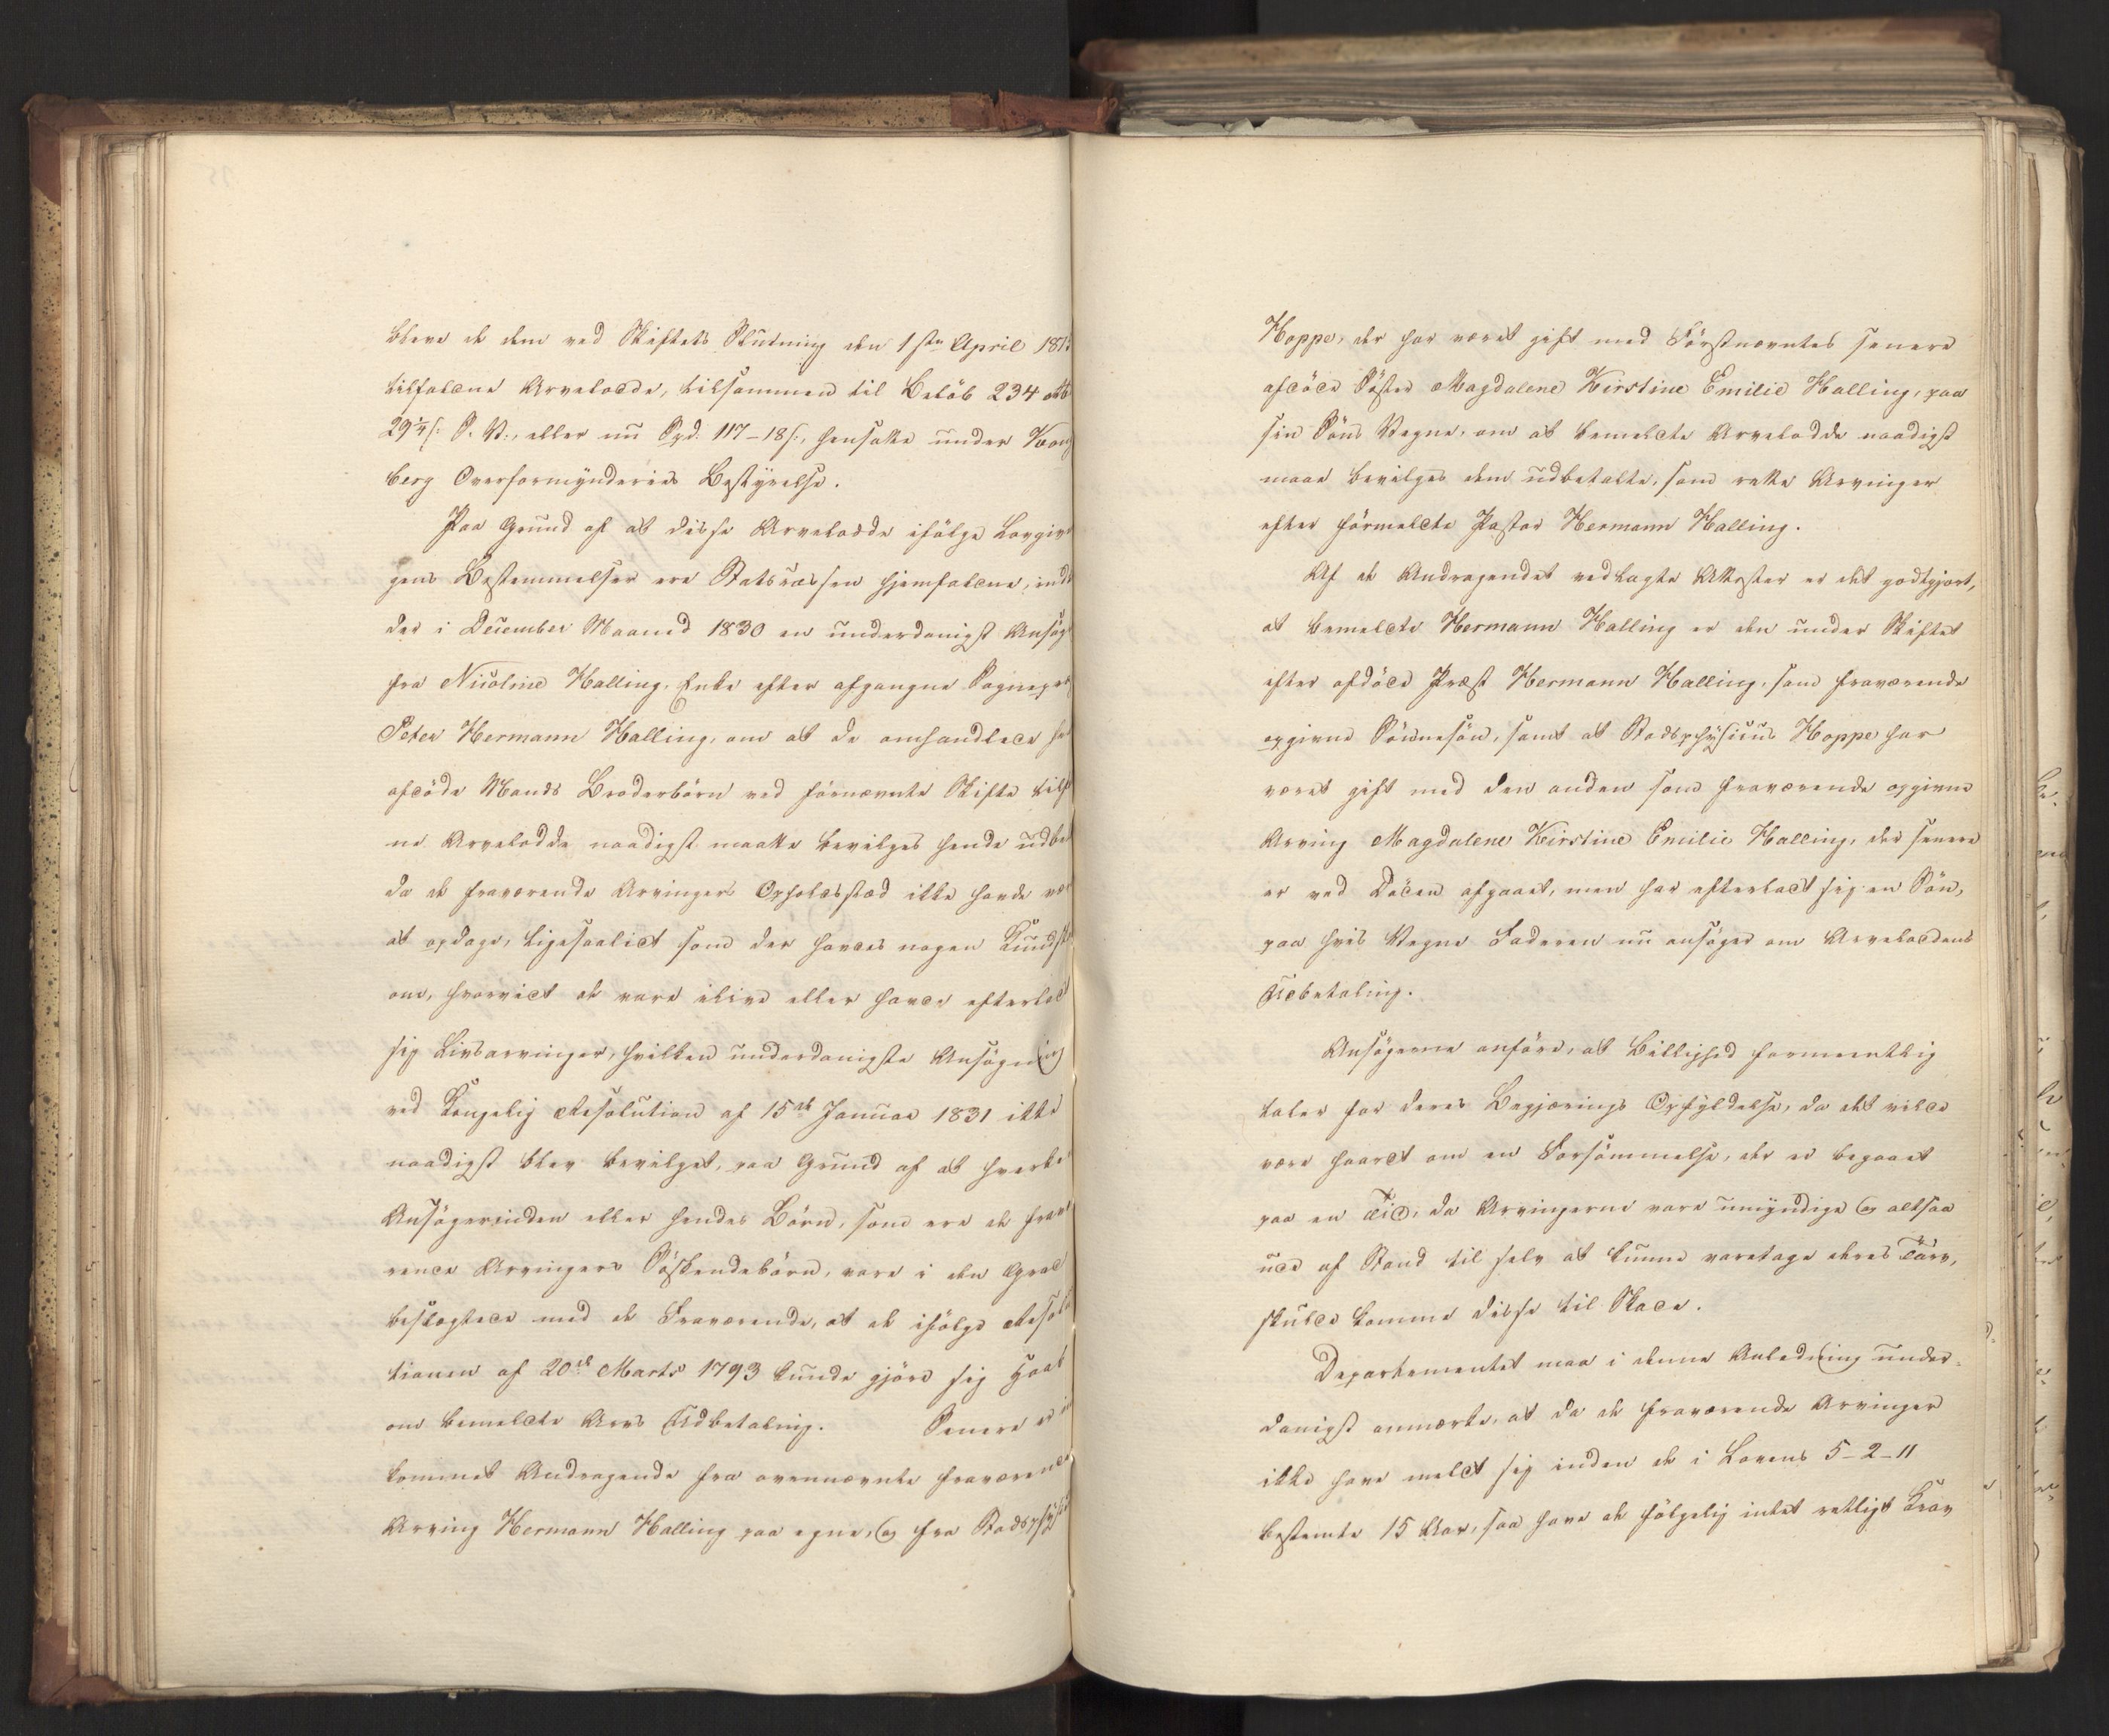 bleve de dem ved Skiftets Slutning den 1ste April 181
tilfaldne Arvelodde, tilsammen til Beløb 234 rbd
29¼ s. S. V., eller nu Spd. 117-18 s., hensatte under Kong
berg Overformynderies Bestyrelse.
Paa Grund af at disse Arvelodde ifölge Lovgiv
gens Bestemmelser ere Statscassen hjemfaldne, ind
der i December Maaned 1830 en underdanigst Ansøg
fra Nicoline Halling, Enke efter afgangne Sognepr
Peter Hermann Halling, om at de omhandlede hen
afdöde Mands Broderbörn ved förnævnte Skifte tilf
ne Arvelodde naadigst maatte bevilges hende udbe
da de fraværende Arvingers Opholdssted ikke havde væ
at opdage, ligesaalidt som der havdes nogen Kundsk
om, hvorvidt de vare ilive eller havde efterlad
sig Livsarvinger, hvilken underdanigste Ansögning
ved Kongelig Resolution af 15de Januar 1831 ikke
naadigst blev bevilget, paa Grund af at hverke
Ansögerinden eller hendes Börn, som ere de fravæ
rende Arvingers Södskendebörn, vare i den Grad
beslægtede med de Fraværende, at de ifölge Resolu
tionen af 20de Marts 1793 kunde gjöre sig Haab
om bemeldte Arvs Udbetaling. Senere er in
kommet Andragende fra ovennævnte fraværende
Arving Hermann Halling paa egne, og fra Stadsphysi
Hoppe, der har været gift med Förstnævntes senere
afdöde Söster Magdalene Kirstine Emilie Halling, paa
sin Söns Vegne, om at bemeldte Arvelodde naadigst
maae bevilges dem udbetalte, som rette Arvinger
efter förmeldte Pastor Hermann Halling.
Af de Andragendet vedlagte Attester er det godtgjort,
at bemeldte Hermann Halling er den under Skiftet
efter afdöde Præst Hermann Halling, som fraværende
opgivne Sönnesön, samt at Stadsphysicus Hoppe har
været gift med den anden som fraværende opgivne
Arving Magdalene Kirstine Emilie Halling, der senere
er ved Döden afgaaet, men har efterladt sig en Sön,
paa hvis Vegne Faderen nu ansöger om Arveloddens
Udbetaling.
Ansögerne anföre, at Billighed formeentlig
taler for deres Begjærings Opfyldelse, da det vilde
være haardt om en Forsömmelse, der er begaaet
paa en Tid, da Arvingerne vare umyndige og altsaa
ude af Stand til selv at kunne varetage deres Tarv,
skulde komme disse til Skade.
Departementet maa i denne Anledning under-
danigst anmærke, at da de fraværende Arvinger
ikke have meldt sig inden de i Lovens 5-2-11
bestemte 15 Aar, saa have de fölgelig intet retligt Krav